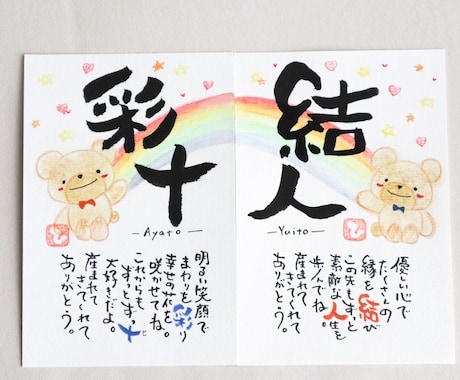 結人
—Yuito—
優しい心で
たくさんの
縁を結び
この先もずっと
素敵な人生を
歩んでね。
産まれて
きてくれて
ありがとう。
彩十
—Ayato—
明るい笑顔で
まわりを彩り
幸せの花を
咲かせてね。
これからも
ずっとずっと
大好きだよ。
産まれて
きてくれて
ありがとう。